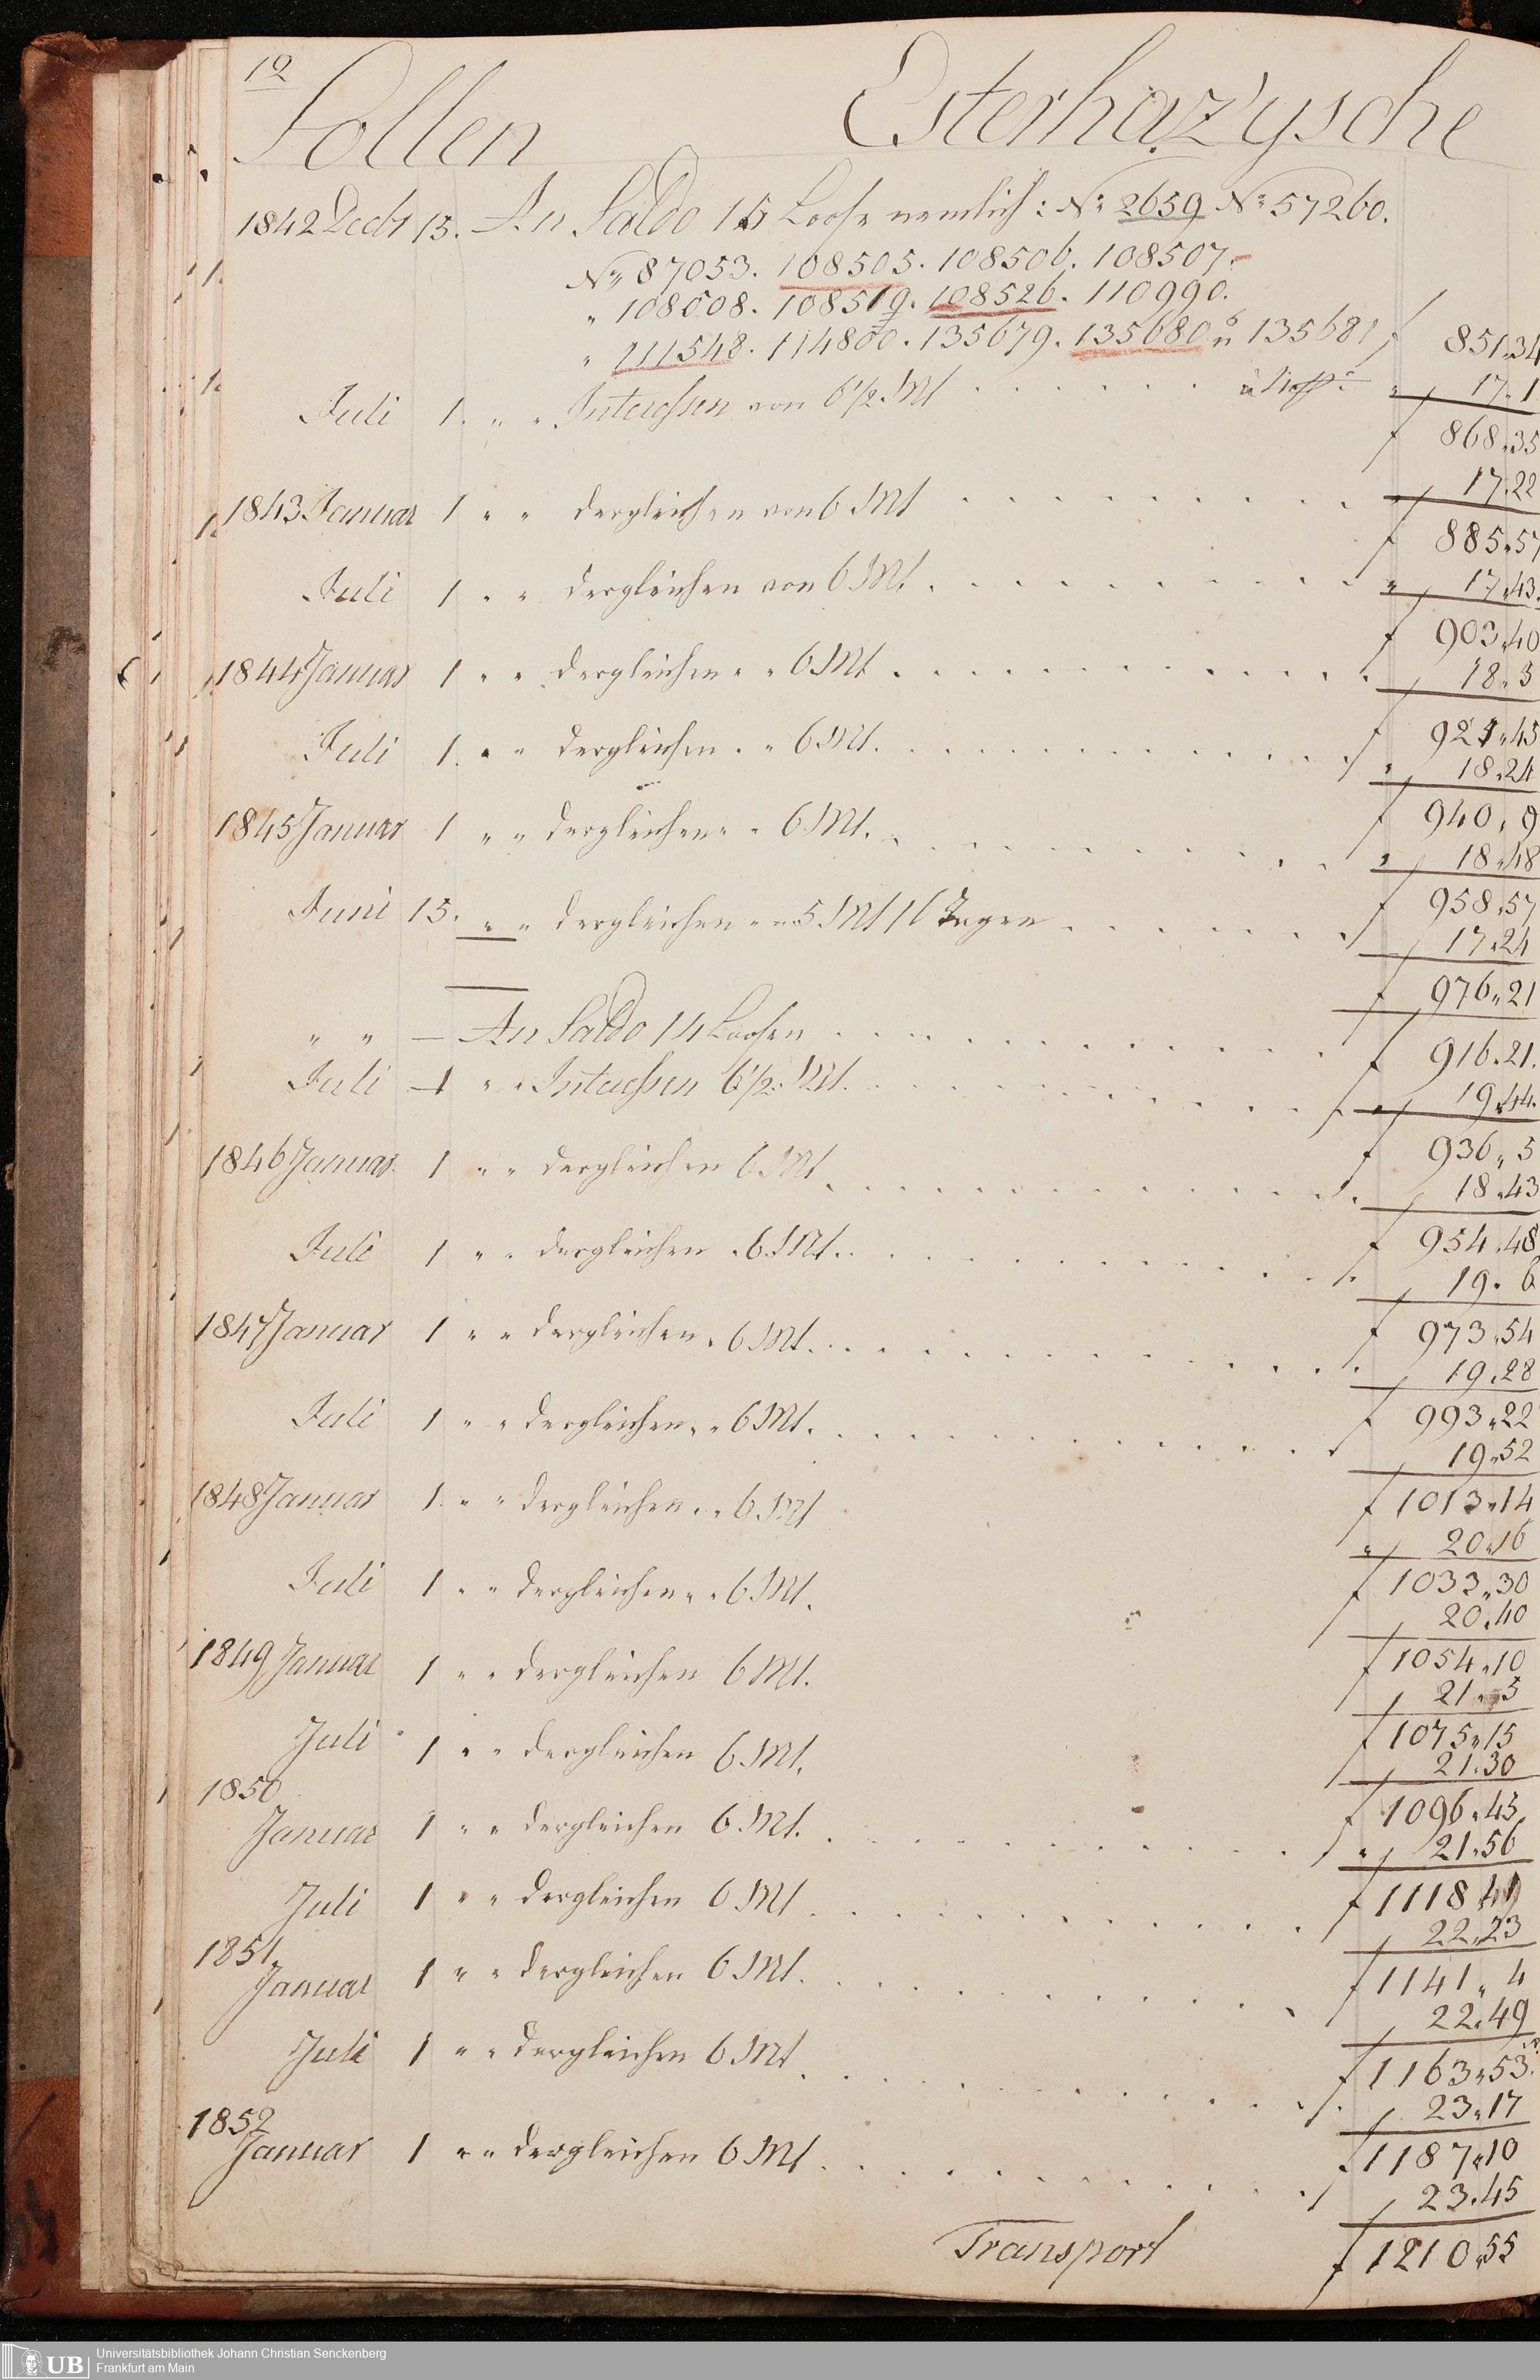 12
Sollen Esterhaz'ysche
1842 Decbr 15. An Saldo 15 Loose nemlich: No 2659 No 57260.
No 87053. 108505. 108506. 108507.
" 108508. 108519. 108526. 110990.
" 111548. 114800. 135679. 135680 u 135681 f 851.34
Juli 1. " " Interessen von 6 1/2 Mt " 17.1
f 868.35
1843 Januar 1 " " dergleichen von 6 Mt " 17.22
f 885.57
Juli 1 " " dergleichen von 6 Mt. " 17.43.
f 903.40
1844 Januar 1 " " dergleichen " " 6 Mt. 18.3
f 921.43
Juli 1. " " dergleichen " " 6 Mt. " 18.24
f 940.9
1845 Januar 1 " " dergleichen " " 6 Mt. " 18.48
f 958.57
Juni 15. " " dergleichen " " 5 Mt 16 Tagen 17.24
f 976.21
" " — An Saldo 14 Loosen f 916.21.
Juli 1 " " Interessen 6 1/2 Mt. " 19.44.
f 936.5
1846 Januar. 1 " " dergleichen 6 Mt 18.43
f 954.48
Juli 1 " " dergleichen " 6 Mt. 19.6
f 973.54
1847 Januar 1 " " dergleichen " 6 Mt. 19.28
f 993.22
Juli 1 " " dergleichen " " 6 Mt. 19.52
f 1013.14
1848 Januar 1. " " dergleichen " " 6 Mt " 20.16
f 1033.30
Juli 1 " " dergleichen " " 6 Mt. 20.40
f 1054.10
1849 Januar 1 " " dergleichen 6 Mt. 21.5
f 1075.15
Juli 1 " " dergleichen 6 Mt. 21.30
1850 f 1096.45
Januar 1 " " dergleichen 6 Mt. " 21.56
f 1118.41
Juli 1 " " dergleichen 6 Mt 22.23
1851. f 1141.4
Januar 1 " " dergleichen 6 Mt. 22.49
f 1163.53.
Juli 1 " " dergleichen 6 Mt 23.17
1852 f 1187.10
Januar 1 " " dergleichen 6 Mt. 23.45
Transport f 1210.55
UB Universitätsbibliothek Johann Christian Senckenberg
Frankfurt am Main